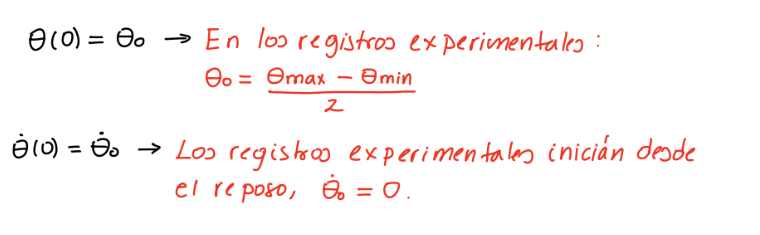 θ(0) = θ₀ → En los registros experimentales :
θ₀ = (θmax − θmin) / 2
θ̇(0) = θ̇₀ → Los registros experimentales inicián desde
el reposo, θ̇₀ = 0.